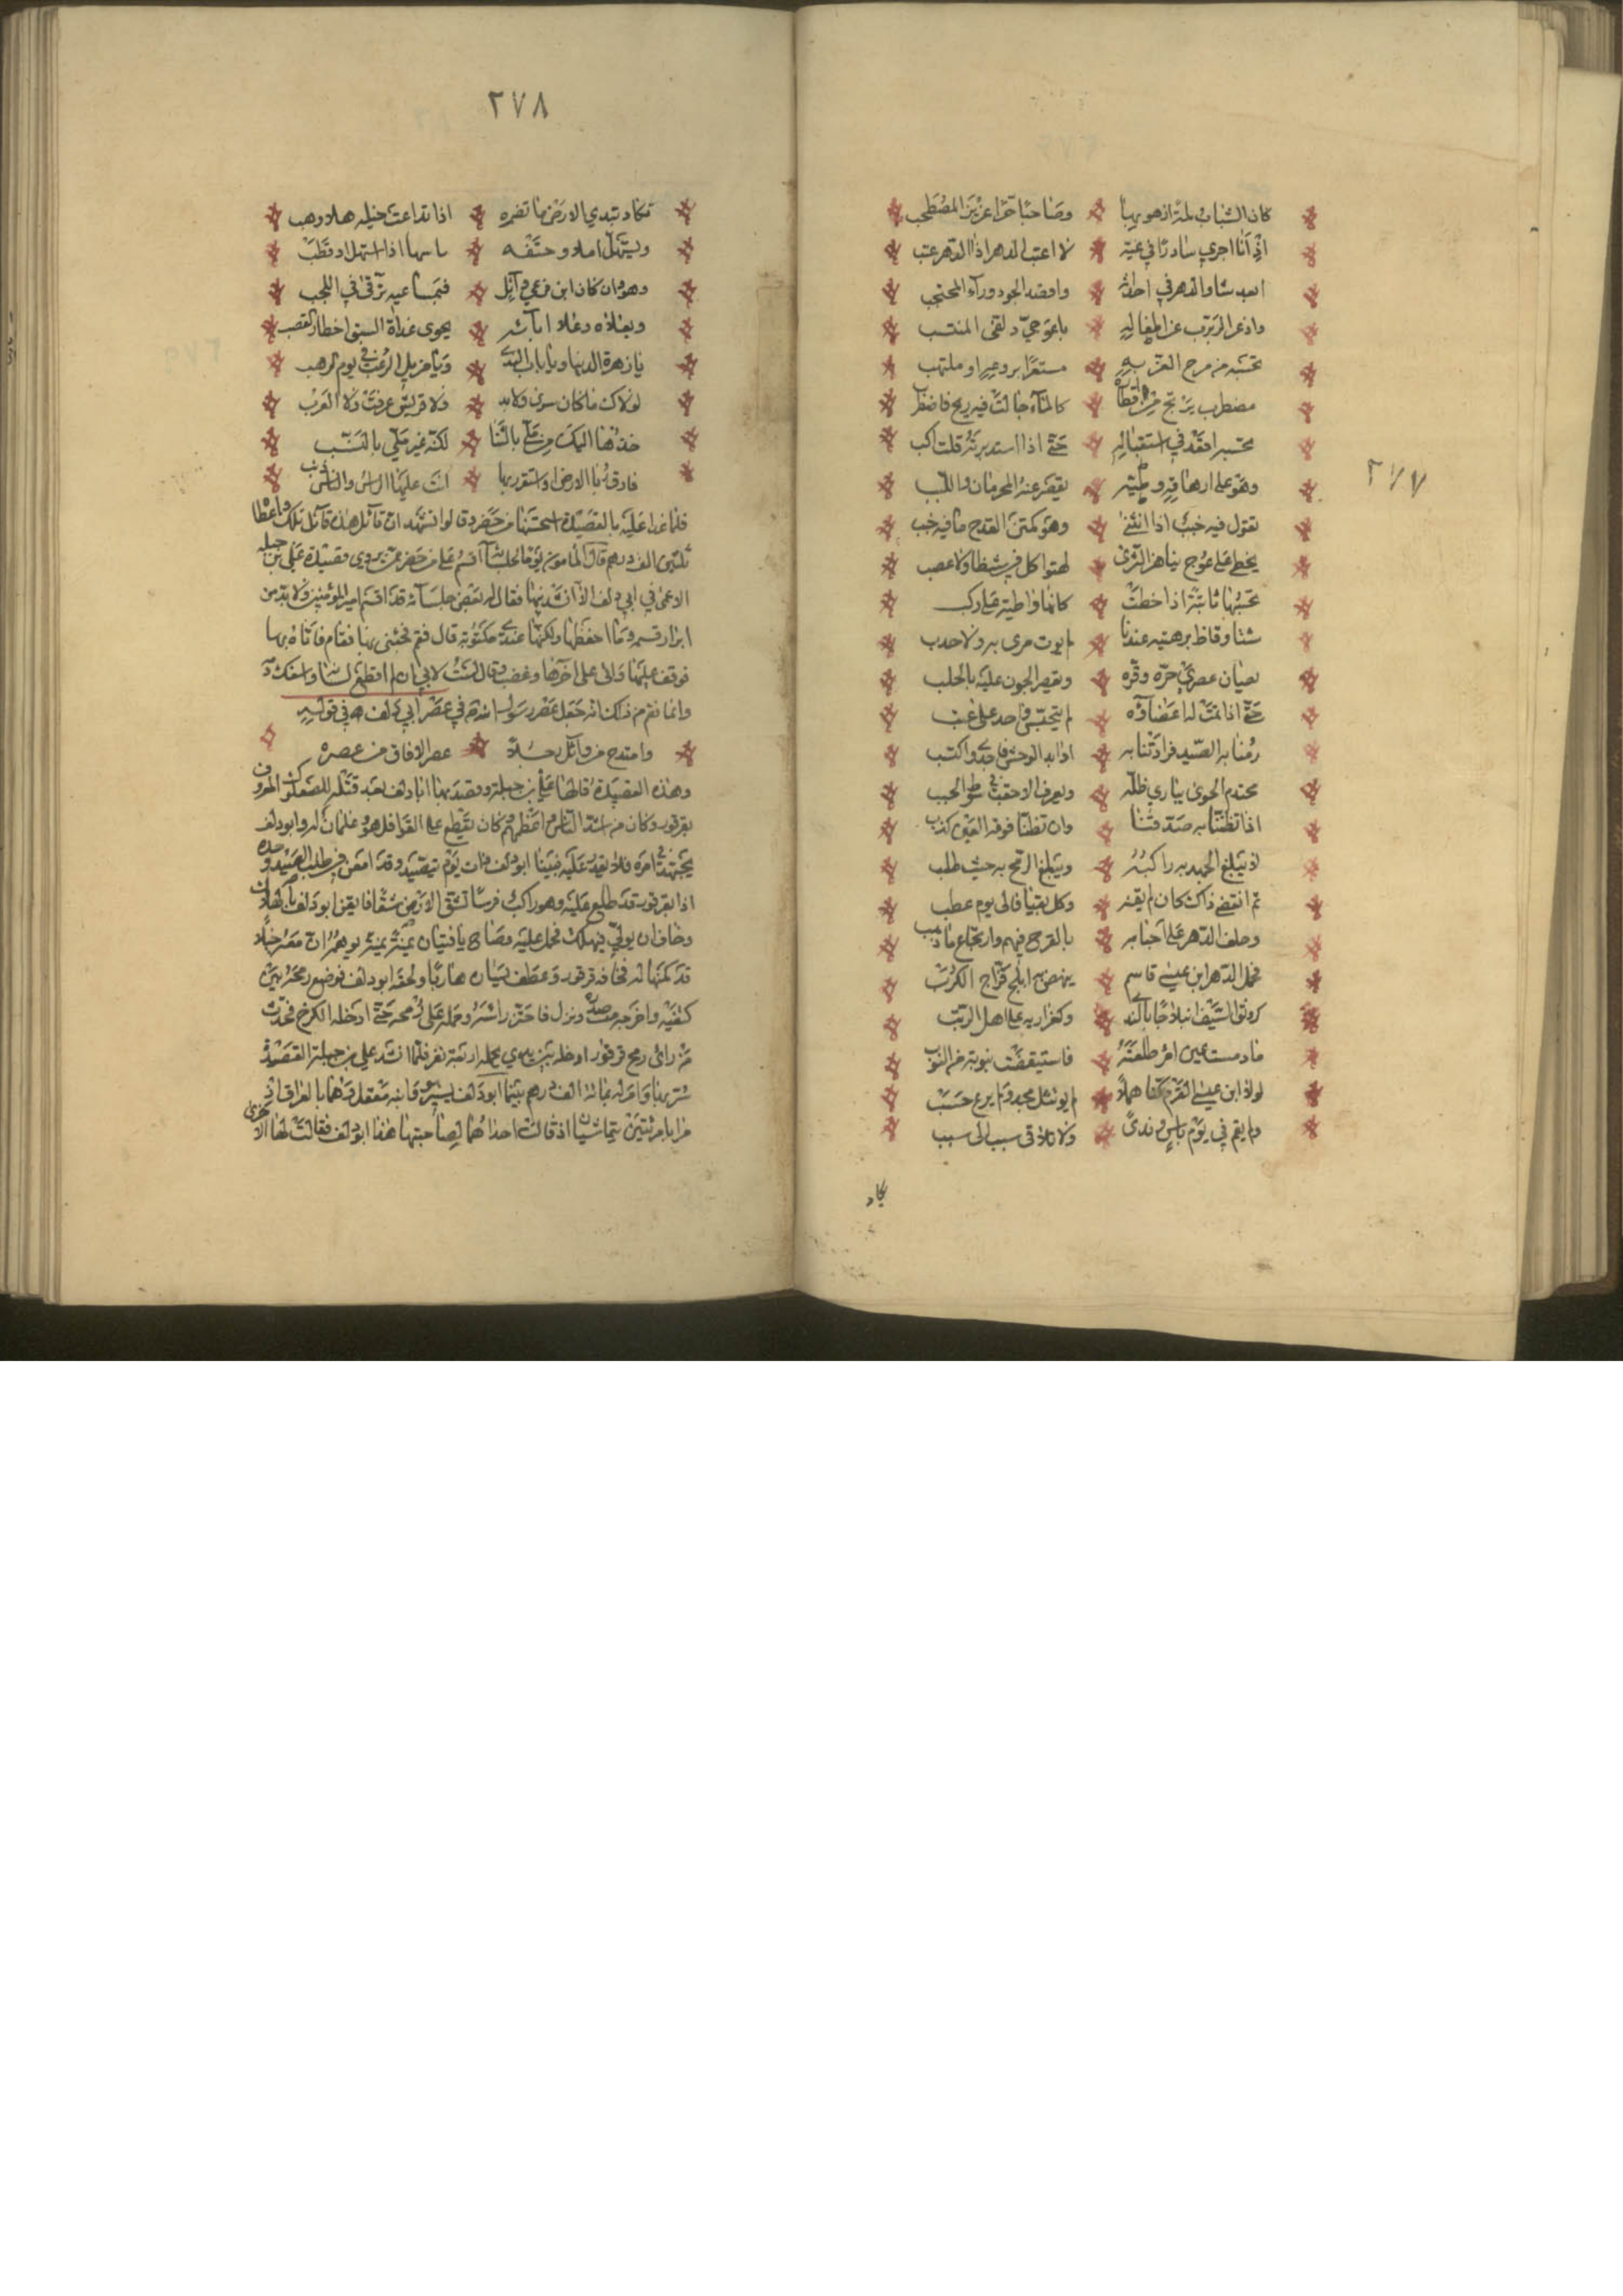 ٢٧٧
كان الشباب لمة ازهو بها وصاحبا حرا عزيز المصطحب
اذ انا اجري سادرا في غيه لا اعتب الدهر اذا الدهر عتب
ابعد شاو الدهر في احداثه واقصد الجود وراء المحتجب
واذعر الربرب عن اطفاله باعوجي دلفي المنتسب
تحسبه من مرح العز به مستنفرا بروعة او ملتهب
مضطرب يرتج من اقطاره كالماء جالت فيه ريح فاضطرب
تحسبه اقعد في استقباله حتى اذا استدبرته قلت اكب
وهو على ارهافه وطيه يقصر عنه المحزمان واللبب
تقول فيه جنب اذا انثنى وهو كمتن القدح ما فيه جنب
يخطو على عوج
تحسبها ثابتة اذا خطت كانها واطية على ركب
شتا وقاظ برهتيه عندنا لم يوت من بر به ولا حدب
يصان عصري حره وقره وتقصر الجون عليه بالحلب
حتى اذا تمت له اعضاؤه لم تنحبس واحدة على عتب
رمنا به الصيد فرادتنا به اوابد الوحش فاجدى واكتسب
محتدم الجرى يباري ظله ويعرف الاحقب في شوط الخبب
اذا تظنينا به صدقنا وان تظنى فوقه العير كذب
لا يبلغ الجهد به راكبه ويبلغ الرمح به حيث طلب
ثم انقضى ذاك كان لم يعنه وكل بقيا فالى يوم عطب
وخلف الدهر على ابنائه بالقدح فيهم وارتجاع ما وهب
فحمل الدهر ابن عيسى قاسم ينهض به ابلج فراج الكرب
كرونق السيف انبلاجا بالندى وكغراريه على اهل الريب
ما وسنت عين امرئ طلعته فاستيقظت بنوبة من النوب
لولا ابن عيسى القرم كنا هملا لم يؤتثل مجد ولم يرع حسب
ولم يقم في يوم باس وندى ولا تلاقى سبب الى سبب
تكاد
٢٧٨
تكاد تبدي الارض ما تضمره اذا تداعت خيله هلا وهب
ويستهل املا وحتفه ما بينها اذا استهل او قطب
وهو وان كان ابن فرعي وائل فبمساعيه ترقى في اللجب
وبعلاه وعلا ابائه يحوى غداة السبق اخطار القصب
يا زهرة الدنيا ويا باب الندى ويا مزيل الرعب في يوم الرهب
لولاك ما كان سدى ولا ندى ولا قريش عرفت ولا العرب
خذها اليك من ملي بالثنا لكنه غير ملي بالنسب
فارق بنا الارض او استقر بها انت عليها الراس والناس ذنب
فلما غدا عليه بالقصيدة استحسنها من حضر وقالوا نشهد ان قائل هذه قائل تلك واعطاه
ثلثين الف درهم قال المامون يوما لجلسائه اقسم على من حضر ممن يروى قصيدة علي بن جبله
الاعمى في ابي دلف الا انشدنيها فقال له بعض جلسائه قد اقسم امير المؤمنين ولا بد من
ابرار قسمه وما احفظها ولكنها عندي مكتوبة قال قم فجئني بها فقام فاتاه بها
فوقف عليها واتى على اخرها وغضب وقال لست لابي ان لم اقطع لسانه واسفك دمه
وانما نقم من ذلك انه جعل عصر رسول الله في عصر ابي دلف في قوله
وامتدح من وائل رجلا عصر الافاق من عصره
وهذه القصيدة قالها علي بن جبلة وقصد بها ابا دلف بعد قتله للصعلوك المعروف
بقرقور وكان من اشد الناس واعظمهم كان يقطع على القوافل هو وغلمان له وابو دلف
يجتهد في امره فلا يقدر عليه فبينا ابو دلف ذات يوم يتصيد وقد امعن في طلب الصيد وحده
اذا بقرقور قد طلع عليه وهو راكب فرسا تشق الارض شقا فايقن ابو دلف بالهلاك
وخاف ان يولي فيهلك فحمل عليه وصاح يا فتيان يمنة يمنة يوهمه ان معه خيلا
قد كمنها له فخافه قرقور وعطف يساره هاربا ولحقه ابو دلف فوضع رمحه بين
كتفيه واخرجه من صدره ونزل فاحتز راسه وحمله على رمحه حتى ادخله الكرخ فحدث
من راى رمح قرقور ادخله بين يدي يحمله اربعة نفر فلما انشد علي بن جبلة القصيدة
سر بها وامر له بمائة الف درهم بينما ابو دلف يسير مع ابنه معقل وهما بالعراق اذ
مرا بامرئتين يتماشيان اذ قالت احداهما لصاحبتها هذا ابو دلف فقالت لها الاخرى